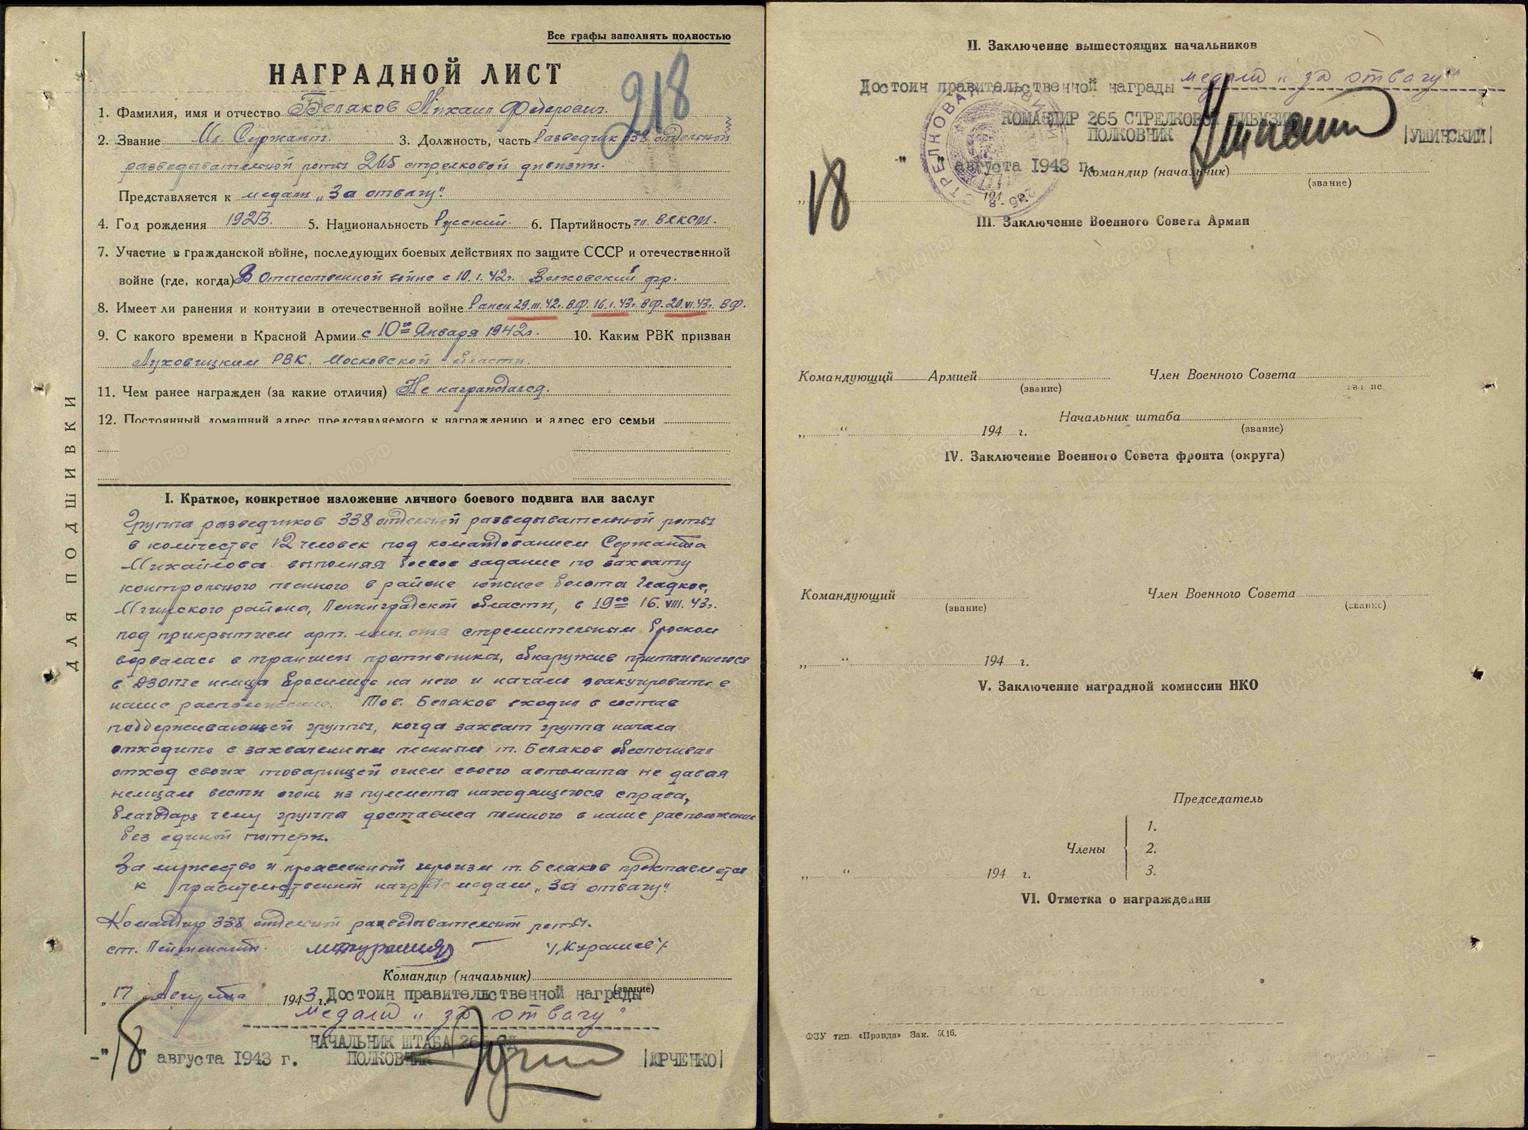 Все графы заполнять полностью
НАГРАДНОЙ ЛИСТ
218
1. Фамилия, имя и отчество Беляков Михаил Федорович.
2. Звание Мл. Сержант. 3. Должность, часть Разведчик 338 отдельной
разведывательной роты 265 стрелковой дивизии.
Представляется к медали „За отвагу".
4. Год рождения 1923. 5. Национальность Русский. 6. Партийность чл. ВЛКСМ.
7. Участие в гражданской войне, последующих боевых действиях по защите СССР и отечественной
войне (где, когда) В Отечественной войне с 10.1.42г. Волховский фр.
8. Имеет ли ранения и контузии в отечественной войне Ранен 29.III.42г. В.Ф. 16.1.43г. В.Ф. 20.VI.43г. В.Ф.
9. С какого времени в Красной Армии с 10го Января 1942г. 10. Каким РВК призван
Луховицким РВК. Московской области.
11. Чем ранее награжден (за какие отличия) Не награждался.
12. Постоянный домашний адрес представляемого к награждению и адрес его семьи
ДЛЯ ПОДШИВКИ
I. Краткое, конкретное изложение личного боевого подвига или заслуг
Группа разведчиков 338 отдельной разведывательной роты
в количестве 12 человек под командованием Сержанта
Михайлова выполняя боевое задание по захвату
контрольного пленного в районе южнее болота Гладкое,
Мгинского района, Ленинградской области, в 19 00 16.VIII.43г.
под прикрытием арт. мин. огня стремительным броском
ворвалась в траншеи противника, обнаружив притаившегося
в ДЗОТе немца бросились на него и начали эвакуировать в
наше расположение. Тов. Беляков входил в состав
поддерживающей группы, когда захват группа начала
отходить с захваченным пленным т. Беляков обеспечивал
отход своих товарищей огнем своего автомата не давая
немцам вести огонь из пулемета находящегося справа,
благодаря чему группа доставила пленного в наше расположение
без единой потери.
За мужество и проявленный героизм т. Беляков представляется
к правительственной награде медали „За отвагу".
Командир 338 отдельной разведывательной роты.
ст. Лейтенант /Курашев/
Командир (начальник)
(звание)
„17 Августа 1943 г.
Достоин правительственной награды
медали „за отвагу"
НАЧАЛЬНИК ШТАБА 265 СД
-"18" августа 1943 г. ПОЛКОВНИК |ЮРЧЕНКО|
II. Заключение вышестоящих начальников
Достоин правительственной награды медали „за отвагу"
КОМАНДИР 265 СТРЕЛКОВОЙ ДИВИЗИИ
ПОЛКОВНИК |УШИНСКИЙ|
18 " " августа 1943 г.
Командир (начальник)
(звание)
„ " 194
III. Заключение Военного Совета Армии
Командующий Армией Член Военного Совета
(звание) (звание)
Начальник штаба
„ " 194 г. (звание)
IV. Заключение Военного Совета фронта (округа)
Командующий Член Военного Совета
(звание) (звание)
„ " 194 г.
V. Заключение наградной комиссии НКО
Председатель
1.
Члены 2.
3.
„ " 194 г.
VI. Отметка о награждении
ФЗУ тип. «Правда» Зак.